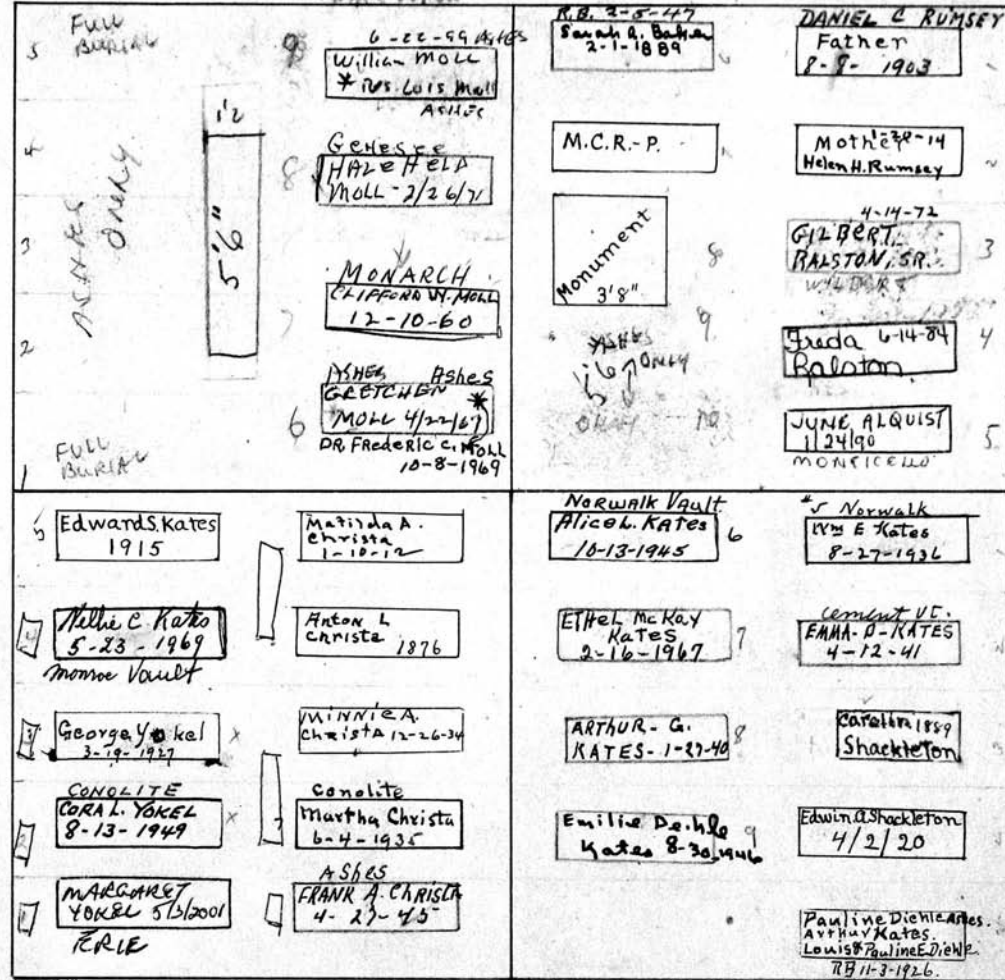 5
FULL
BURIAL
4
ASHES
ONLY
3
2
FULL
BURIAL
1
1'2
5'6"
9
6-22-99 Ashes
William MOLL
* Lois Moll
ASHES
8
GENESEE
HAZEL HELD
MOLL - 2/26/71
7
MONARCH
CLIFFORD W. MOLL
12-10-60
6
ASHES Ashes
GRETCHEN *
MOLL 4/22/67
DR. FREDERIC C. MOLL
10-8-1969
R.B. 2-5-47
Sarah R. Baker
2-1-1889
M.C.R.-P.
Monument
3'8"
8
9
ASHES
ONLY
10
DANIEL C RUMSEY
Father
8-8-1903
Mother 1-28-14
Helen H. Rumsey
4-14-72
GILBERT
RALSTON, SR.
3
Freda 6-14-84
Ralston
4
JUNE ALQUIST
1/24/90
MONTICELLO
5
5
Edward S. Kates
1915
Nellie C. Kates
5-23-1969
Monroe Vault
3
George Yokel
3-19-1927
x
CONOLITE
CORA L. YOKEL
8-13-1949
x
2
MARGARET
YOKEL 5/3/2001
ERIE
1
Matilda A.
Christa
1-10-12
Anton L
Christa
1876
MINNIE A.
Christa 12-26-34
Conolite
Martha Christa
6-4-1935
Ashes
FRANK A. Christa
4-27-45
NORWALK Vault
Alice L. Kates
10-13-1945
6
ETHEL McKay
Kates
2-16-1967
7
ARTHUR-G.
KATES-1-27-40
8
Emilie Deihle
Kates 8-30-1946
9
#5 Norwalk
Wm E Kates
8-27-1936
Cement VT.
EMMA-D-KATES
4-12-41
1889
Shackleton
Edwin A Shackleton
4/2/20
Pauline Diehle Ashes.
Arthur Kates.
Louis & Pauline E Diehle
RB 11-3-1926.